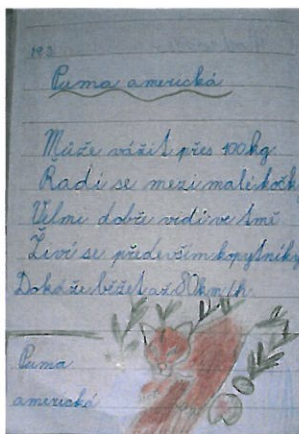 19.2.
Puma americká
Může vážit přes 100kg.
Řadí se mezi malé kočk
Velmi dobře vidí ve tmě
Živí se především kopytníky
Dokáže běžet až 80km/h.
Puma
americká